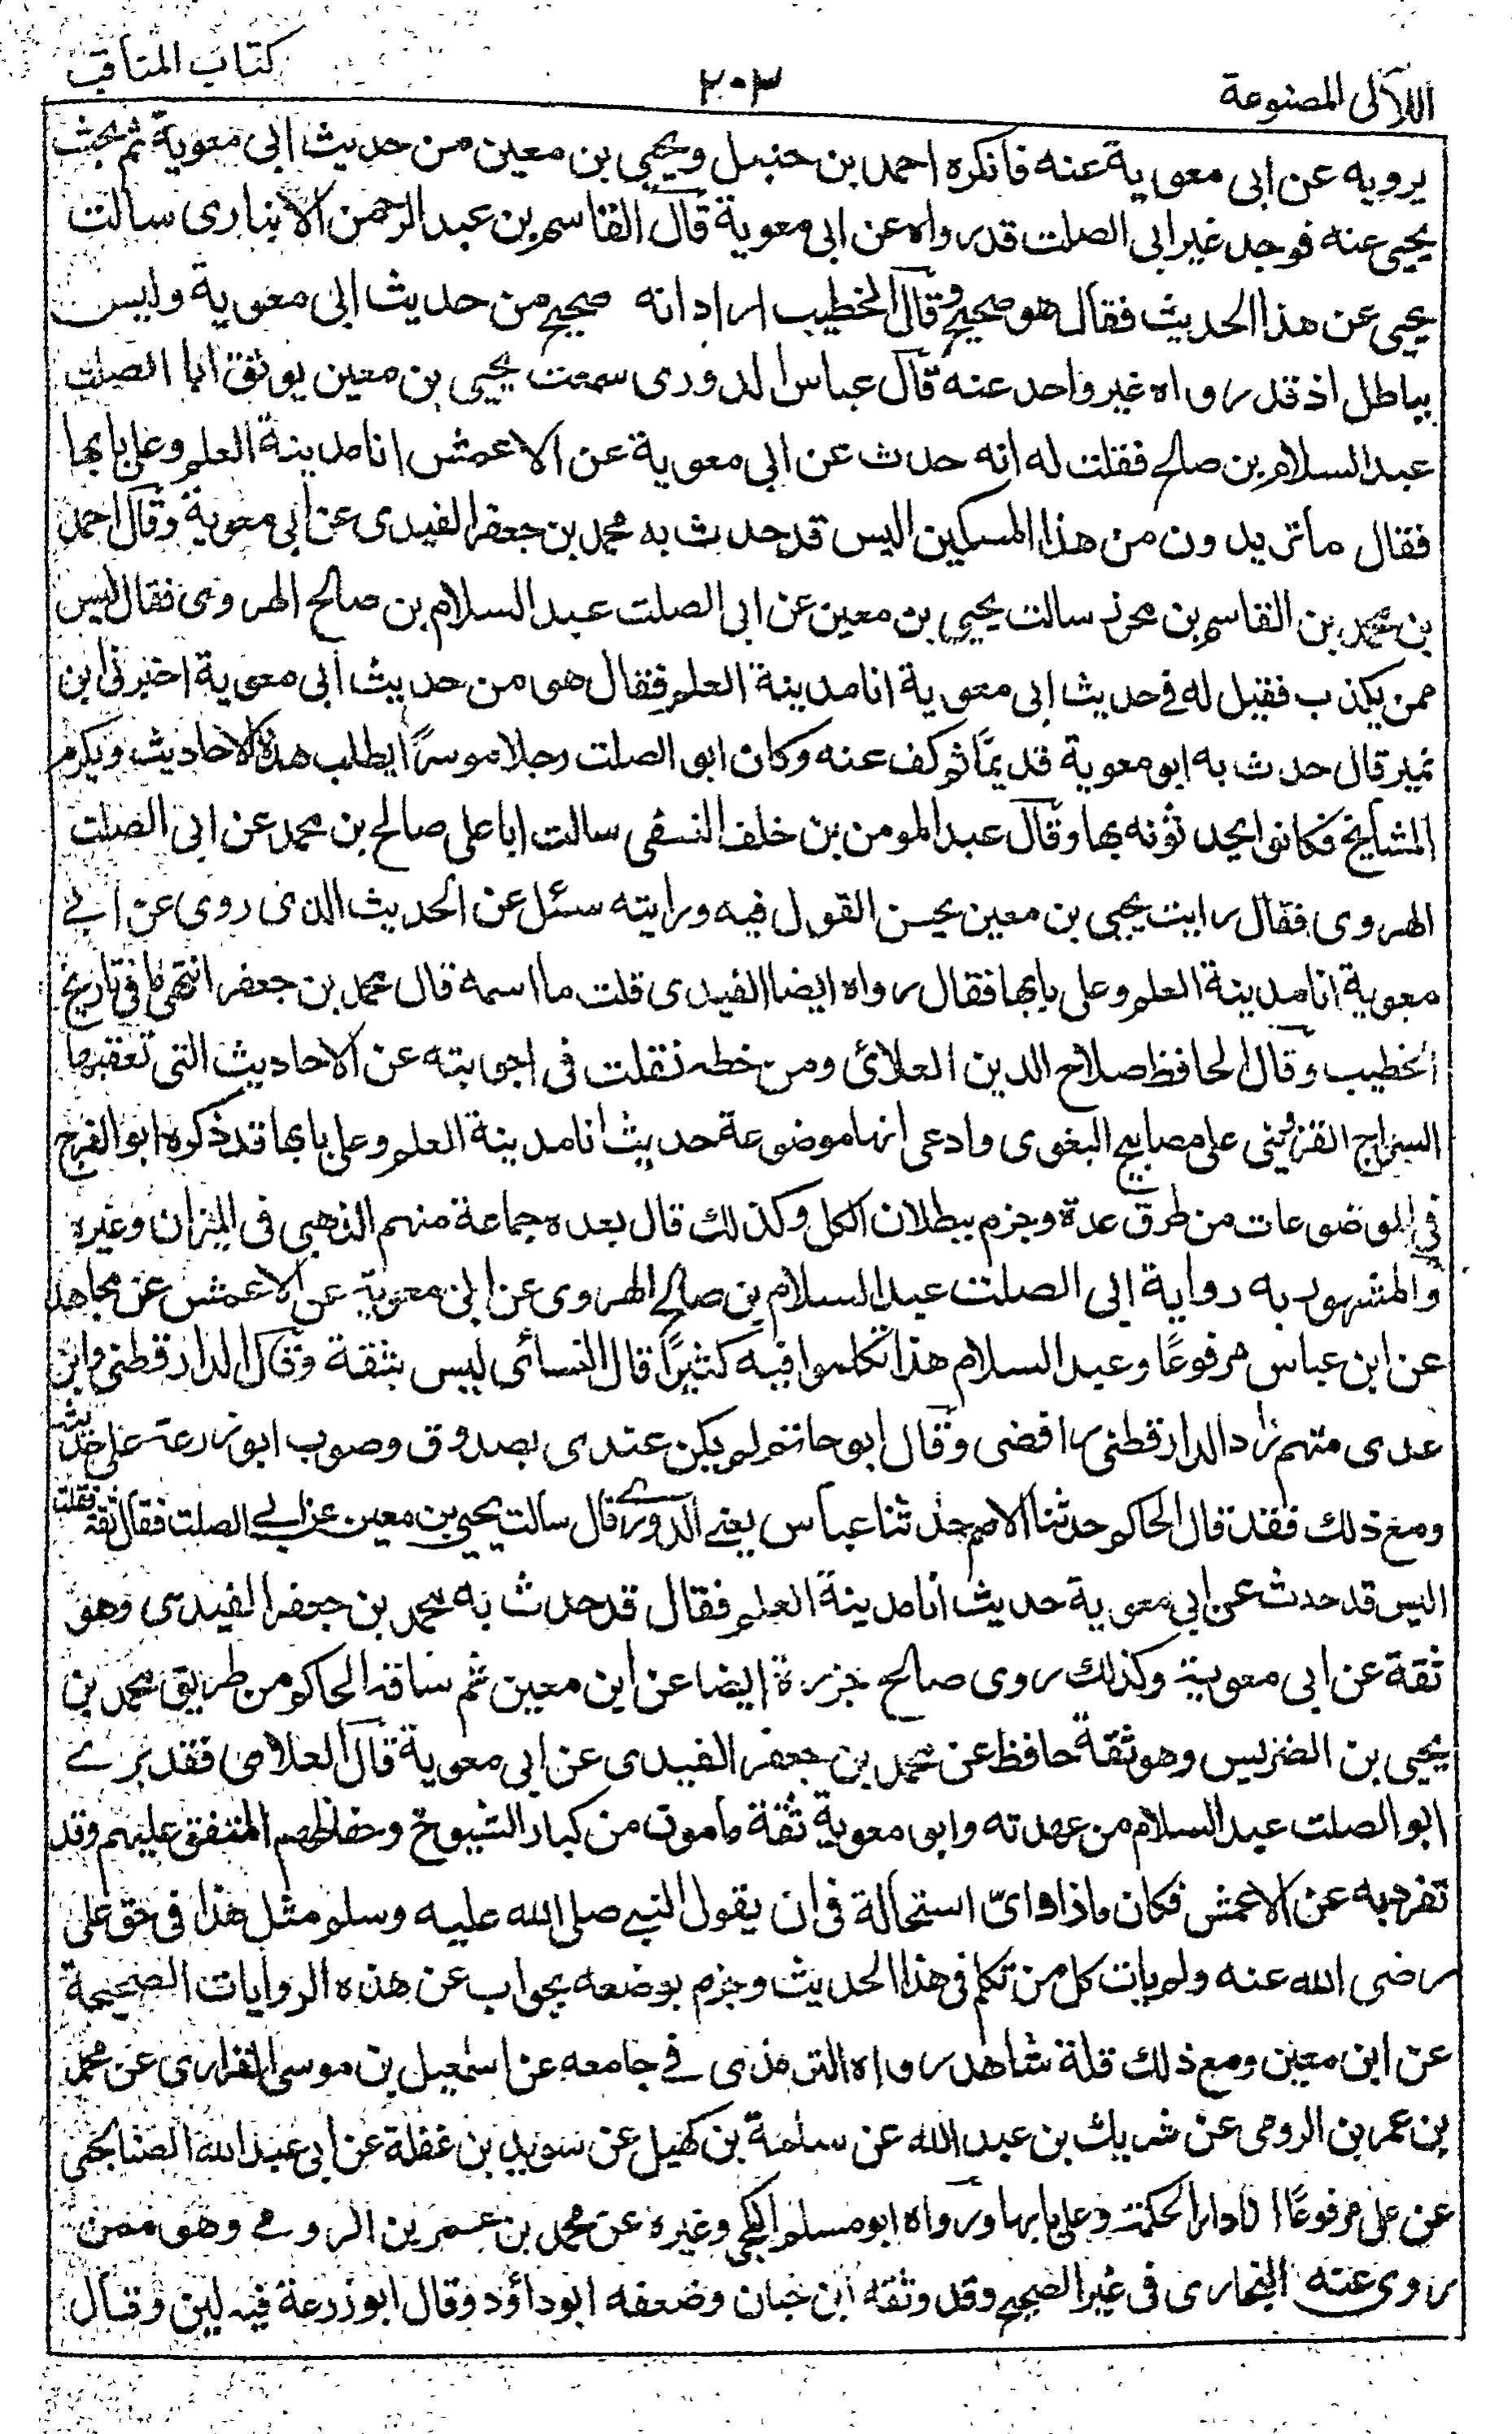 اللآلى المصنوعة
٢٠٣
كتاب المناقب
يرويه عن ابى معوية عنه فانكره احمد بن حنبل ويحيى بن معين من حديث ابى معوية ثم بحث
يحيى عنه فوجد غير ابى الصلت قد رواه عن ابى معوية قال القاسم بن عبد الرحمن الانبارى سالت
يحيى عن هذا الحديث فقال هو صحيح وقال الخطيب اراد انه صحيح من حديث ابى معوية وليس
بباطل اذ قد رواه غير واحد عنه قال عباس الدورى سمعت يحيى بن معين يوثق ابا الصلت
عبد السلام بن صالح فقلت له انه حدث عن ابى معوية عن الاعمش انا مدينة العلم وعلى بابها
فقال ما تريدون من هذا المسكين اليس قد حدث به محمد بن جعفر الفيدى عن ابى معوية وقال احمد
بن محمد بن القاسم بن محرز سالت يحيى بن معين عن ابى الصلت عبد السلام بن صالح الهروى فقال ليس
ممن يكذب فقيل له فى حديث ابى معوية انا مدينة العلم فقال هو من حديث ابى معوية اخبرنى ابن
نمير قال حدث به ابو معوية قديمًا ثم كف عنه وكان ابو الصلت رجلا موسرًا يطلب هذه الاحاديث ويكرم
المشايخ فكانوا يحدثونه بها وقال عبد المومن بن خلف النسفى سالت ابا على صالح بن محمد عن ابى الصلت
الهروى فقال رايت يحيى بن معين يحسن القول فيه ورايته سئل عن الحديث الذى روى عن ابى
معوية انا مدينة العلم وعلى بابها فقال رواه ايضا الفيدى قلت ما اسمه قال محمد بن جعفر انتهى ما فى تاريخ
الخطيب وقال الحافظ صلاح الدين العلائ ومن خطه نقلت فى اجوبته عن الاحاديث التى تعقبها
السراج القزوينى على مصابيح البغوى وادعى انها موضوعة حديث انا مدينة العلم وعلى بابها قد ذكره ابو الفرج
فى الموضوعات من طرق عدة وجزم ببطلان الكل وكذلك قال بعده جماعة منهم الذهبى فى الميزان وغيره
والمشهور به رواية ابى الصلت عبد السلام بن صالح الهروى عن ابى معوية عن الاعمش عن مجاهد
عن ابن عباس مرفوعًا وعبد السلام هذا تكلموا فيه كثيرًا قال النسائى ليس بثقة وقال الدارقطنى وابن
عدى متهم زاد الدارقطنى رافضى وقال ابو حاتم لم يكن عندى بصدوق وضرب ابو زرعة على حديثه
ومع ذلك فقد قال الحاكم حدثنا الاصم حدثنا عباس يعنى الدورى قال سالت يحيى بن معين عن ابى الصلت فقال ثقة فقلت
اليس قد حدث عن ابى معوية حديث انا مدينة العلم فقال قد حدث به محمد بن جعفر الفيدى وهو
ثقة عن ابى معوية وكذلك روى صالح جزرة ايضا عن ابن معين ثم ساقه الحاكم من طريق محمد بن
يحيى بن الضريس وهو ثقة حافظ عن محمد بن جعفر الفيدى عن ابى معوية قال العلائى فقد برئ
ابو الصلت عبد السلام من عهدته وابو معوية ثقة مامون من كبار الشيوخ وحفاظهم المتفق عليهم وقد
تفرد به عن الاعمش فكان ماذا واىّ استحالة فى ان يقول النبى صلى الله عليه وسلم مثل هذا فى حق على
رضى الله عنه ولم يات كل من تكلم فى هذا الحديث وجزم بوضعه بجواب عن هذه الروايات الصحيحة
عن ابن معين ومع ذلك فله شاهد رواه الترمذى فى جامعه عن اسمعيل بن موسى الفزارى عن محمد
بن عمر بن الرومى عن شريك بن عبد الله عن سلمة بن كهيل عن سويد بن غفلة عن ابى عبد الله الصنابحى
عن على مرفوعًا انا دار الحكمة وعلى بابها ورواه ابو مسلم الكجى وغيره عن محمد بن عمر بن الرومى وهو ممن
روى عنه البخارى فى غير الصحيح وقد وثقه ابن حبان وضعفه ابو داؤد وقال ابو زرعة فيه لين وقال